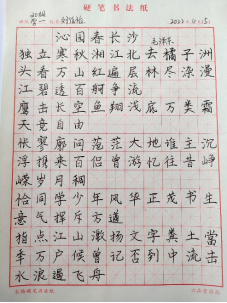 硬笔书法纸
沁园春长沙
毛泽东
独立寒秋湘江北去橘子洲
头看万山红遍层林尽染漫
江碧透百舸争流
鹰击长空鱼翔浅底万类霜
天竞自由
怅寥廓问苍茫大地谁主沉
浮携来百侣曾游忆往昔峥
嵘岁月稠
恰同学少年风华正茂书生
意气挥斥方遒
指点江山激扬文字粪土當
年万户侯曾记否到中流击
水浪遏飞舟